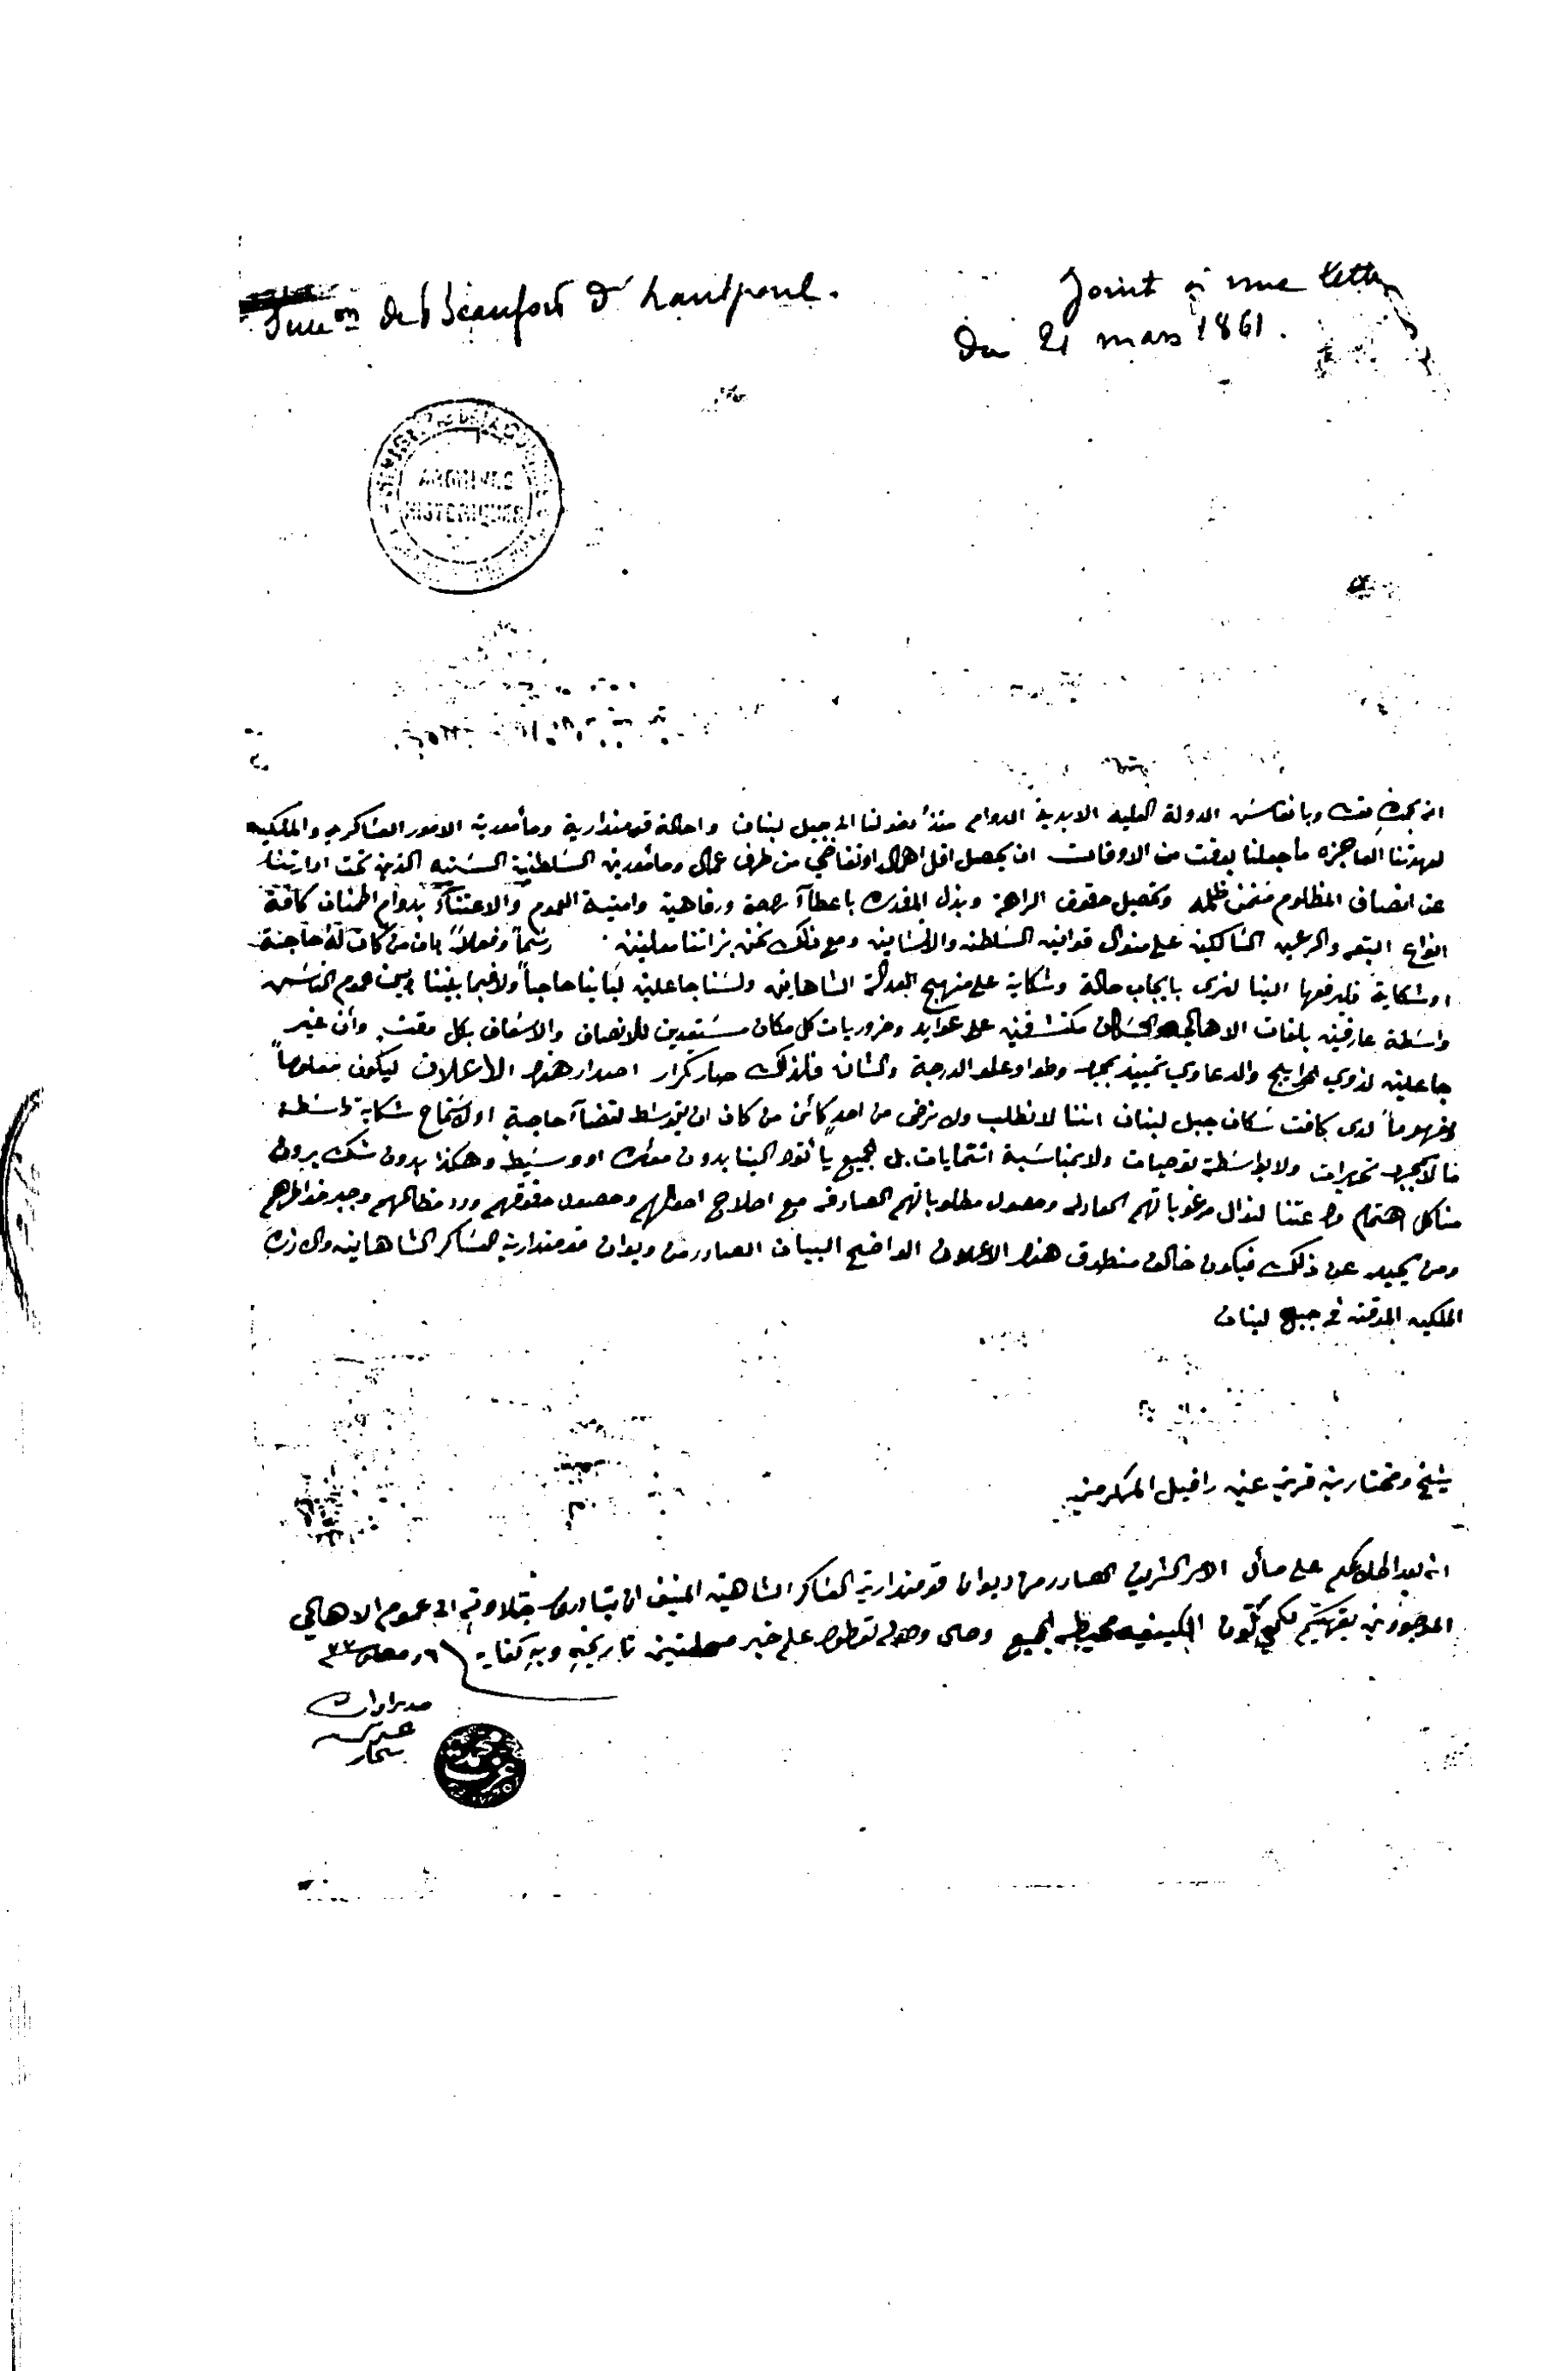 Succ^on de Beaufort d'hautpoul.
Joint à une lettre
du 21 mars 1861.
ARCHIVES
HISTORIQUES
انه بحمده تعالى وبانفاس الدولة العلية الابدية الدوام منذ دخولنا الى جبل لبنان واحالة قومندارية ومأمورية الامور العساكرية والملكيه
لعهدتنا العاجزه ما جعلنا بوقت من الاوقات ان يحصل اقل اهمال او تغاضي من طرف عمال ومأمورين السلطنية السنيه الذين تحت ادارتنا
عن انصاف المظلوم ممن ظلمه وتحصيل حقوق الراهنة وبذل المقدرة باعطآ راحة ورفاهية وامنية العموم والاعتنآء بدوام اطمئنان كافة
انواع التبعه والرعيه السالكين على منوال قوانين السلطنه ومع ذلك نحن بذاتنا معلنين رسماً وفعلاً بان من كان له حاجة
او شكاية فليرفعها الينا لنرى بايجاب حاله وشكاية على منهج العدالة الشاهانيه ولسنا جاعلين لبابنا حاجباً ولا فيما بيننا وبين عموم الناس
واسطة عارفين بلغات الاهالي والسكان على عوايد وضروريات كل مكان مستعدين للانصاف والاسعاف بكل وقت وان غير
جاعلين لذوي الحوايج والدعاوي تمييز علو الدرجة والشان فلذلك صار تكرار اصدار هذا الاعلان ليكون معلوماً
ومفهوماً لدى كافة سكان جبل لبنان اننا لا نطلب ولا نرضى من احدٍ كائن من كان ان يتوسط لقضآء حاجةٍ او لاستماع شكاية واسطة
ما لا تحريرات ولا بواسطة توصيات ولا بمناسبة انتمايات بل الجميع يأتوا الينا بدون او وسيط وهكذا بدون شك يرون
منا كل اهتمام لنوال مرغوباتهم العادله وحصول مطلوباتهم الصادقه مع اصلاح احوالهم وحصول حقوقهم ورد مظالمهم وجبر خواطرهم
ومن يحيد عن ذلك فيكون خالف منطوق هذا الاعلان الواضح البيان الصادر من ديوان قومندارية العساكر الشاهانيه والادارة
الملكيه الموقته في جبل لبنان
شيخ ومختارين قرية عين رافيل المكرمين
انه بعد اطلاعكم على مآل الامر الشريف الصادر من ديوان قومندارية العساكر الشاهانية المنيف ان تبادروا بتلاوتهِ الى عموم الاهالي
الموجودين بقريتكم لكي تكون الكيفيه محيطة الجميع وحال وصوله تعطوا علم خبر تاريخهِ وبهِ كفايه
محمد عزت